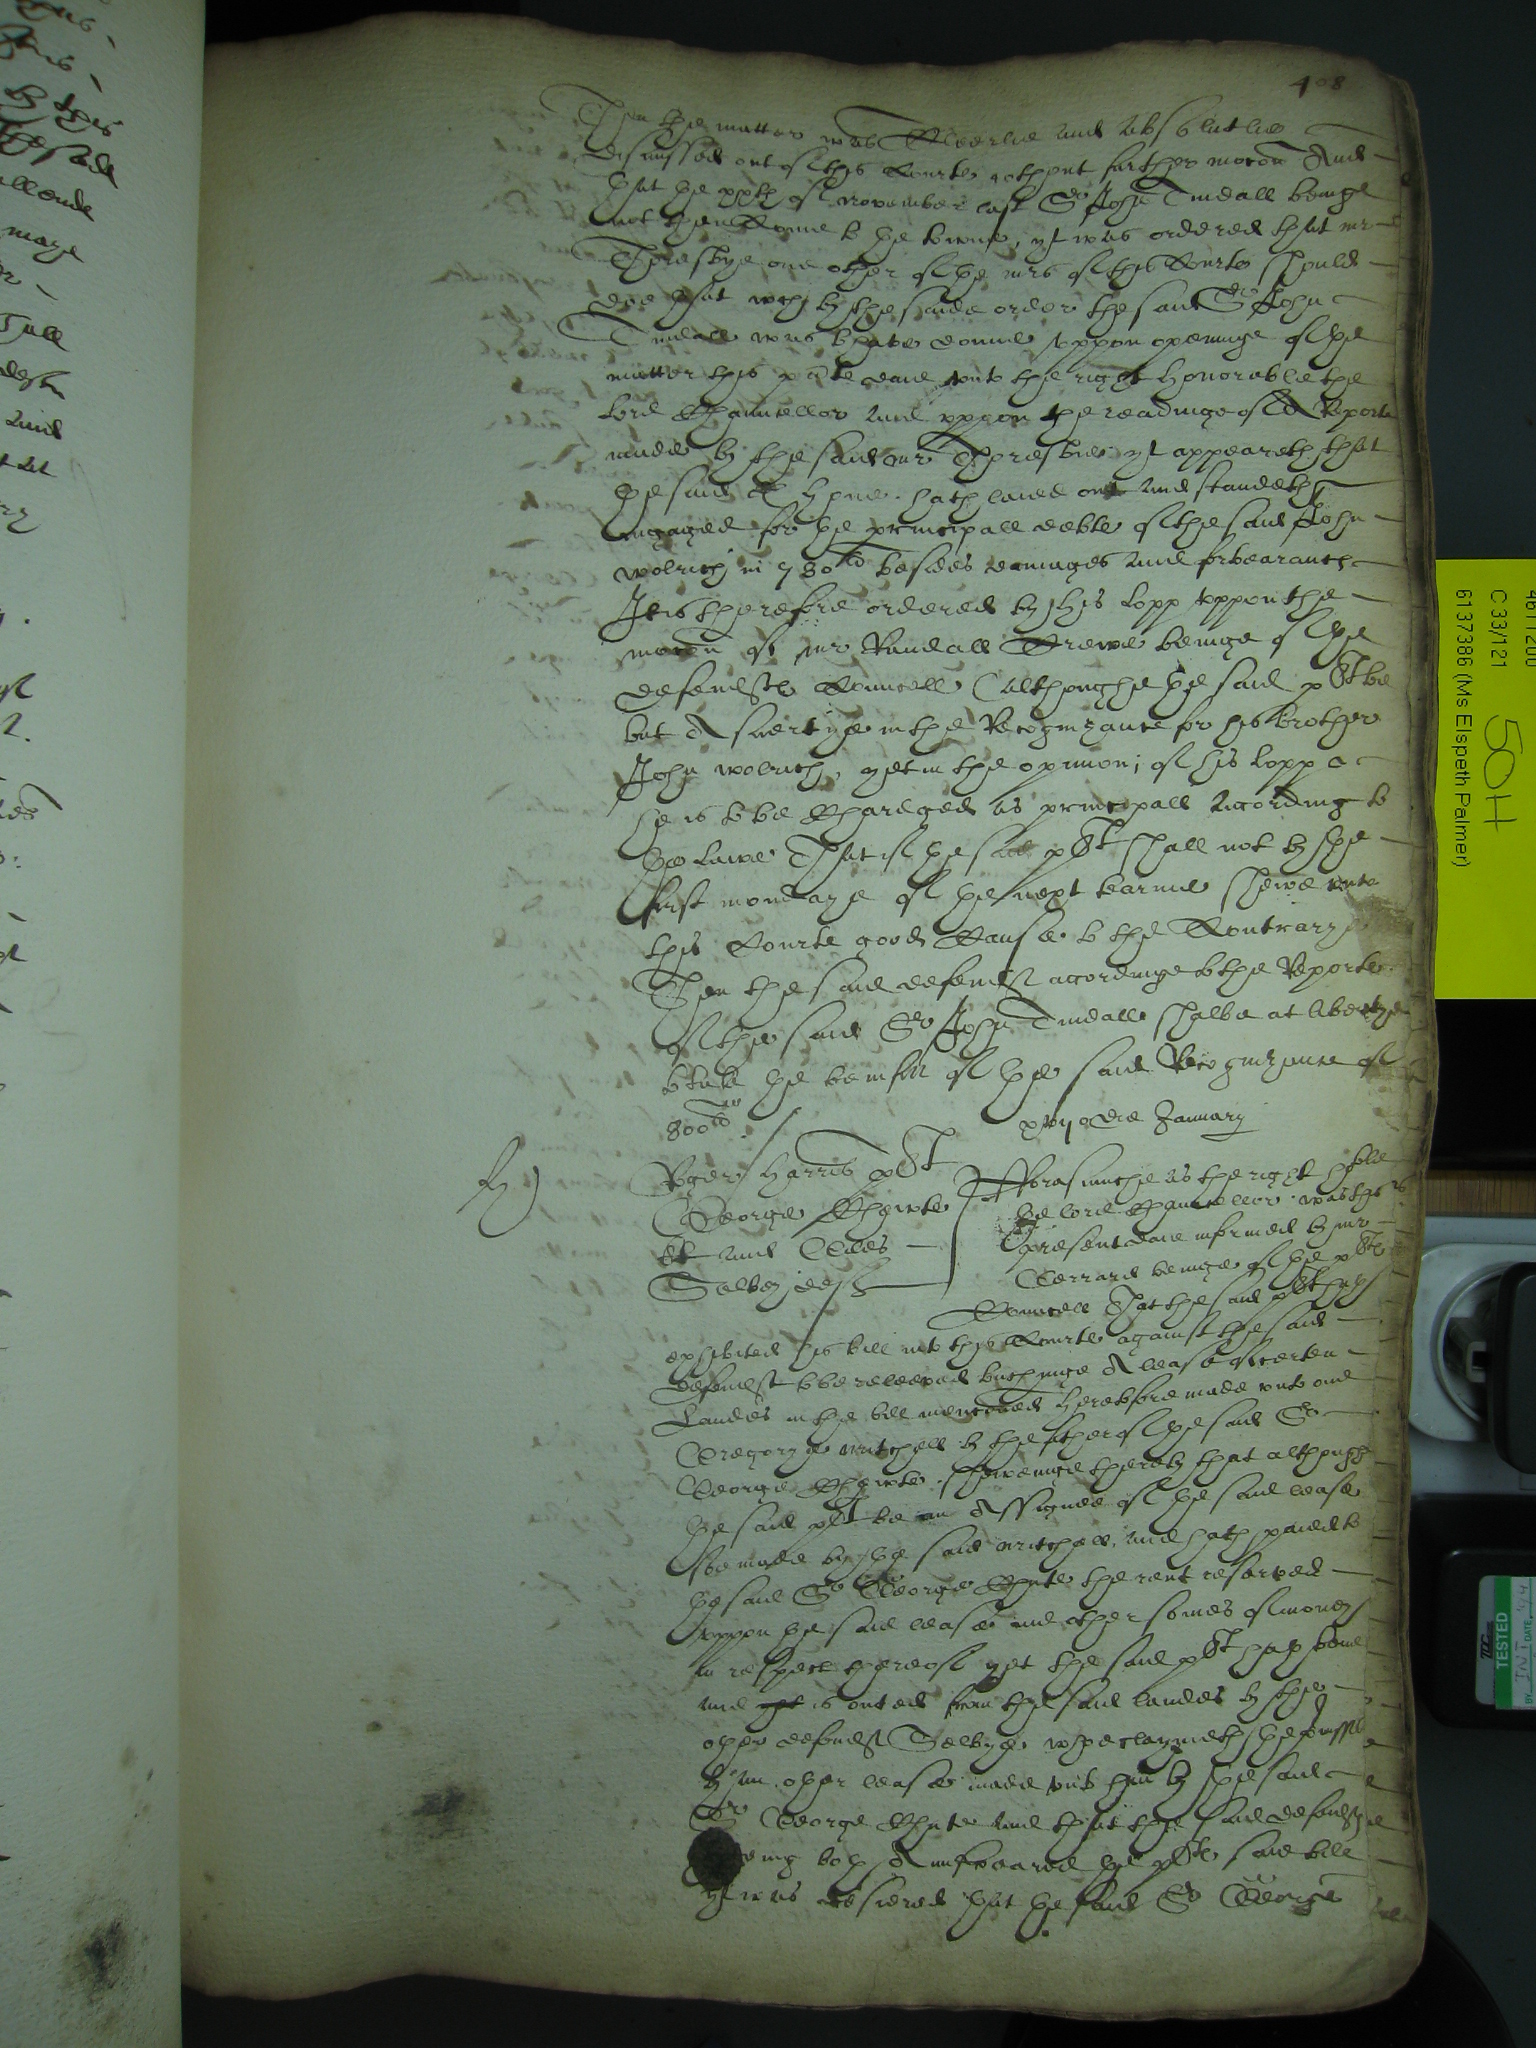 408
Then the matter was Cleerlie and absolutlie
dismissed out of this Courte wthout further mocon And
that the xxth of november last Sr John Tindall beinge
not then Come to the towne, yt was ordered that mr
Thresbye one other of the mrs of this Courte should
doe that wch by the saide order the said Sr John
Tindall was to have donne vppon openinge of the
matter this pnte daie vnto the right honorable the
lord Chauncellor and vppon the readinge of A Reporte
made by the said mr Thresbie yt appeareth that
the said hath laied out and standeth
engaged for the principall debte of the said John
wolrich in 780li besides damages and forbearance
It is therefore ordered by his lopp vppon the
mocon of mr Randall Crewe beinge of the
defendtes Councell (althoughe the said plt be
but A suertye in the Recognizance for his brother
John wolrich, yet in the opinion of his lopp
he is to be Chardged as principall according to
the lawe That if the said plt shall not by the
first mondaye of the next tearme shewe vnto
this Courte good Cause to the Contrarye
Then the said defendt accordinge to the Reporte
of the said Sr John Tindall shalbe at libertye
to take the benifitt of the said Recognizance of
800li
xvijo die January
Roger Harris plt
George Chewte
kt and
Selbey deftes
Forasmuche as the right hoble
the lord Chauncellor was this
present daie informed by mr
Gerrard beinge of the pltes
Councell That the said plt hath
exhibited his bill into this Courte against the said
defendtes to be releeved touchinge A lease of certen
Landes in the bill mencioned heretofore made vnto one
Gregorye mitchell by the father of the said Sr
George Chewte, shewinge thereby that although
the said plt be an Assignee of the said lease
soe made by the said mitchell, and hath paied to
the said Sr George Chute the rent reserved
vppon the said lease and other somes of money
in respect thereof yet the said plt hath bene
and is outed from the said landes by the
other defendt Selbye who claymeth the
by an other lease made vnto him by the said
Sr George Chute and that the said defendtes
boths Aunsweared the pltes said bill
yt was desiered that the said Sr George
461 1200
C 33/121
6137386 (Ms Elspeth Palmer)
50H
TESTED